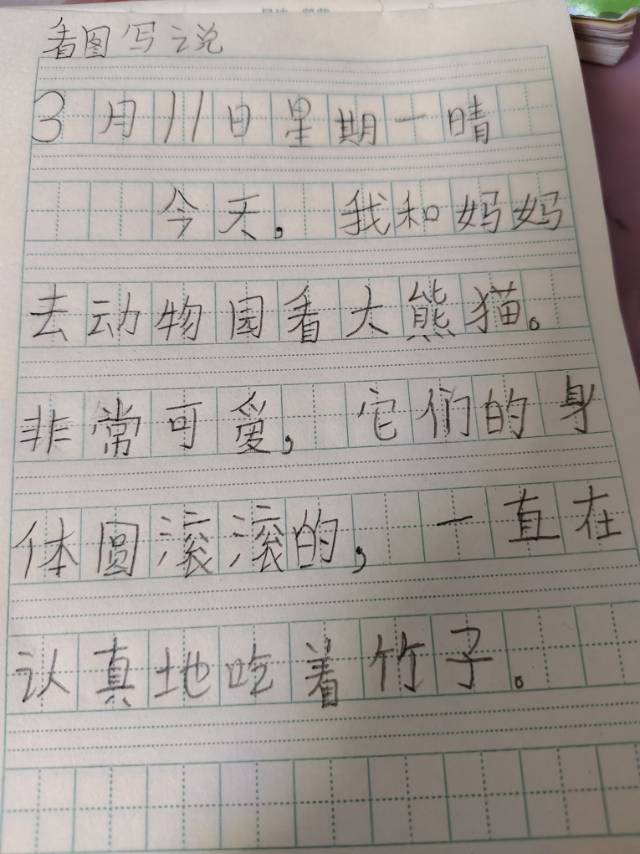 看图写说
3月11日星期一晴
今天，我和妈妈
去动物园看大熊猫。
非常可爱，它们的身
体圆滚滚的，一直在
认真地吃着竹子。